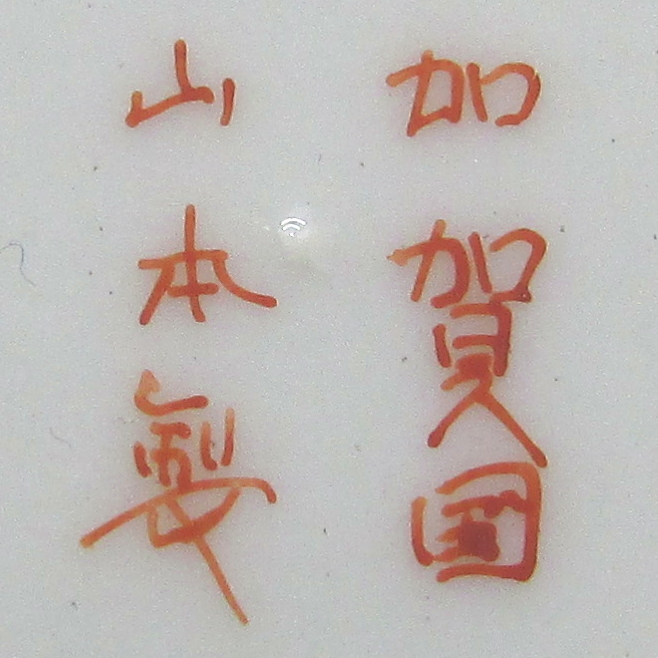 加賀國
山本製